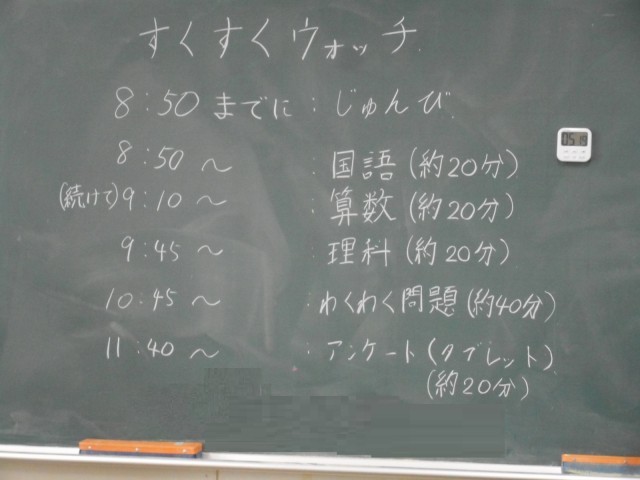 すくすくウォッチ
8:50までに:じゅんび
8:50～:国語(約20分)
(続けて)9:10～:算数(約20分)
9:45～:理科(約20分)
10:45～:わくわく問題(約40分)
11:40～:アンケート(タブレット)
(約20分)